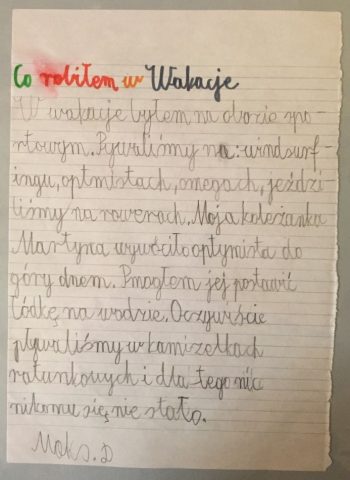 Co robiłem w Wakacje
W wakacje byłem na obozie spo-
rtowym. Pływaliśmy na: windsurf-
ingu, optmistach, omegach, jeździ-
liśmy na rowerach. Moja koleżanka
Martyna wywóciło optymista do
góry dnem. Pmogłem jej postawić
łódkę na wodzie. Oczywiście
pływaliśmy w kamizelkach
ratunkowych i dla tego nic
nikomu się nie stało.
Maks. D